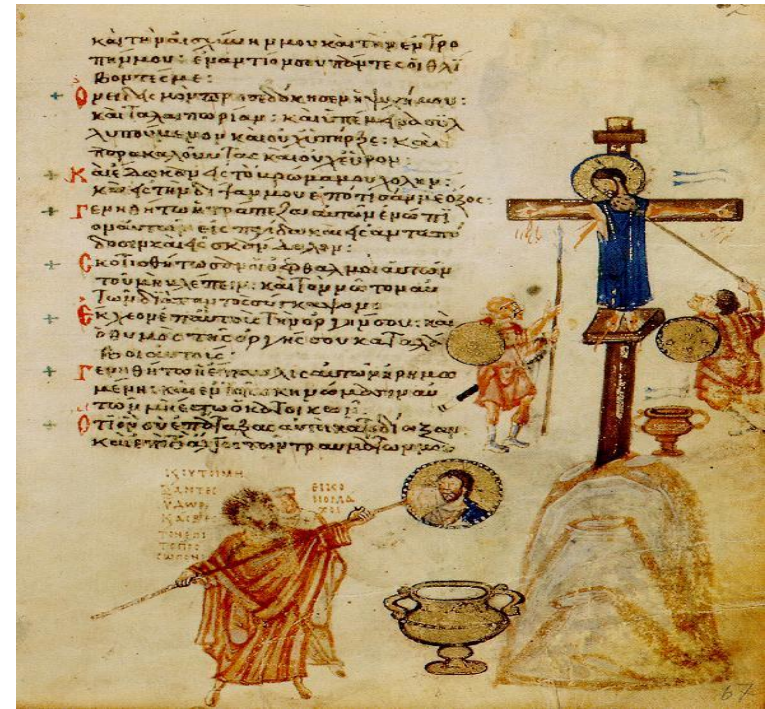 καὶ τὴν αἰσχύνην μου καὶ τὴν ἐντρο
πήν μου: ἐναντίον σου πάντες οἱ θλί
βοντές με:
Ὀνειδισμὸν προσεδόκησεν ἡ ψυχή μου:
καὶ ταλαιπωρίαν: καὶ ὑπέμεινα συλ
λυπούμενον καὶ οὐχ ὑπῆρξε: καὶ
παρακαλοῦντας καὶ οὐχ εὗρον:
Καὶ ἔδωκαν εἰς τὸ βρῶμα μου χολήν:
καὶ εἰς τὴν δίψαν μου ἐπότισάν με ὄξος:
Γενηθήτω ἡ τράπεζα αὐτῶν ἐνώπι
ον αὐτῶν εἰς παγίδα καὶ εἰς ἀνταπό
δοσιν καὶ εἰς σκάνδαλον:
Σκοτισθήτωσαν οἱ ὀφθαλμοὶ αὐτῶν
τοῦ μὴ βλέπειν: καὶ τὸν νῶτον αὐ
τῶν διὰ παντὸς σύγκαμψον:
Ἔκχεον ἐπ αὐτοὺς τὴν ὀργήν σου: καὶ
ὁ θυμὸς τῆς ὀργῆς σου καταλά
βοι αὐτούς:
Γενηθήτω ἡ ἔπαυλις αὐτῶν ἠρημω
μένη: καὶ ἐν τοῖς σκηνώμασιν αὐ
τῶν μὴ ἔστω ὁ κατοικῶν:
Ὅτι ὃν σὺ ἐπάταξας αὐτοὶ κατεδίωξαν
καὶ ἐπὶ τὸ ἄλγος τῶν τραυμάτων μου
ΕΙΚΟ
ΝΟΜΑ
ΧΟΙ
67